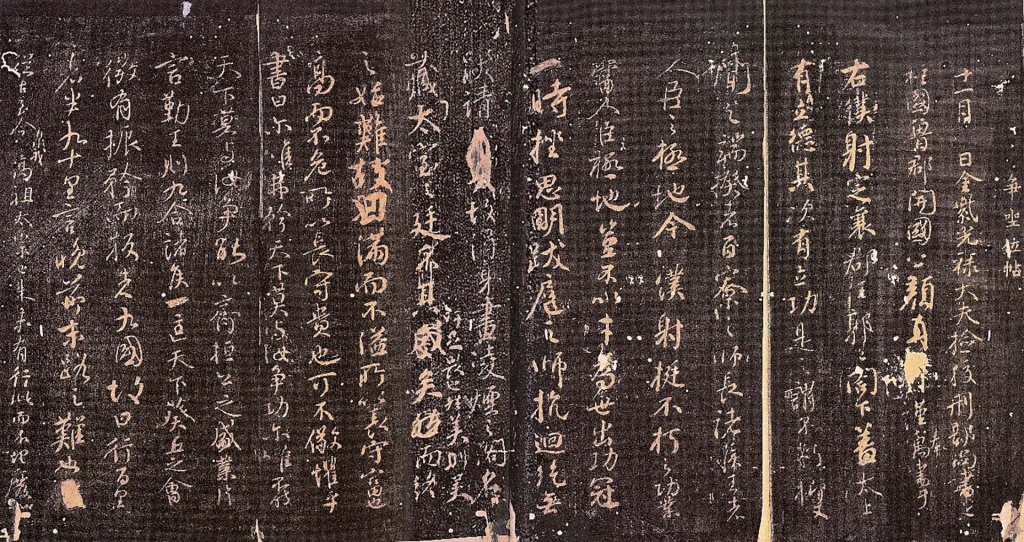 争坐位帖
十一月 日金紫光祿大夫檢校刑部尚書上
柱國魯郡開國公顏真卿謹奉書于
右僕射定襄郡王郭公閤下蓋太上
有立德其次有立功是之謂不朽抑又
聞之端揆者百寮之師長諸侯王者
人臣之極地今僕射挺不朽之功業
當人臣極地豈不以才為世出功冠
一時挫思明跋扈之師抗迴紇無
猒之請故得身畫凌煙之閣名
藏太室之廷 然美則美矣而終
之始難故曰滿而不溢所以長守富
高而不危所以長守貴也可不儆懼乎
書曰尔唯弗矜天下莫與汝争功尔唯不伐
天下莫與汝争能以齊桓公之盛業片
言勤王則九合諸侯一匡天下葵丘之會
微有振矜而叛者九國故曰行百里
者半九十里言晚節末路之難也
從古至今 我高祖太宗已來未有行此而不理廢